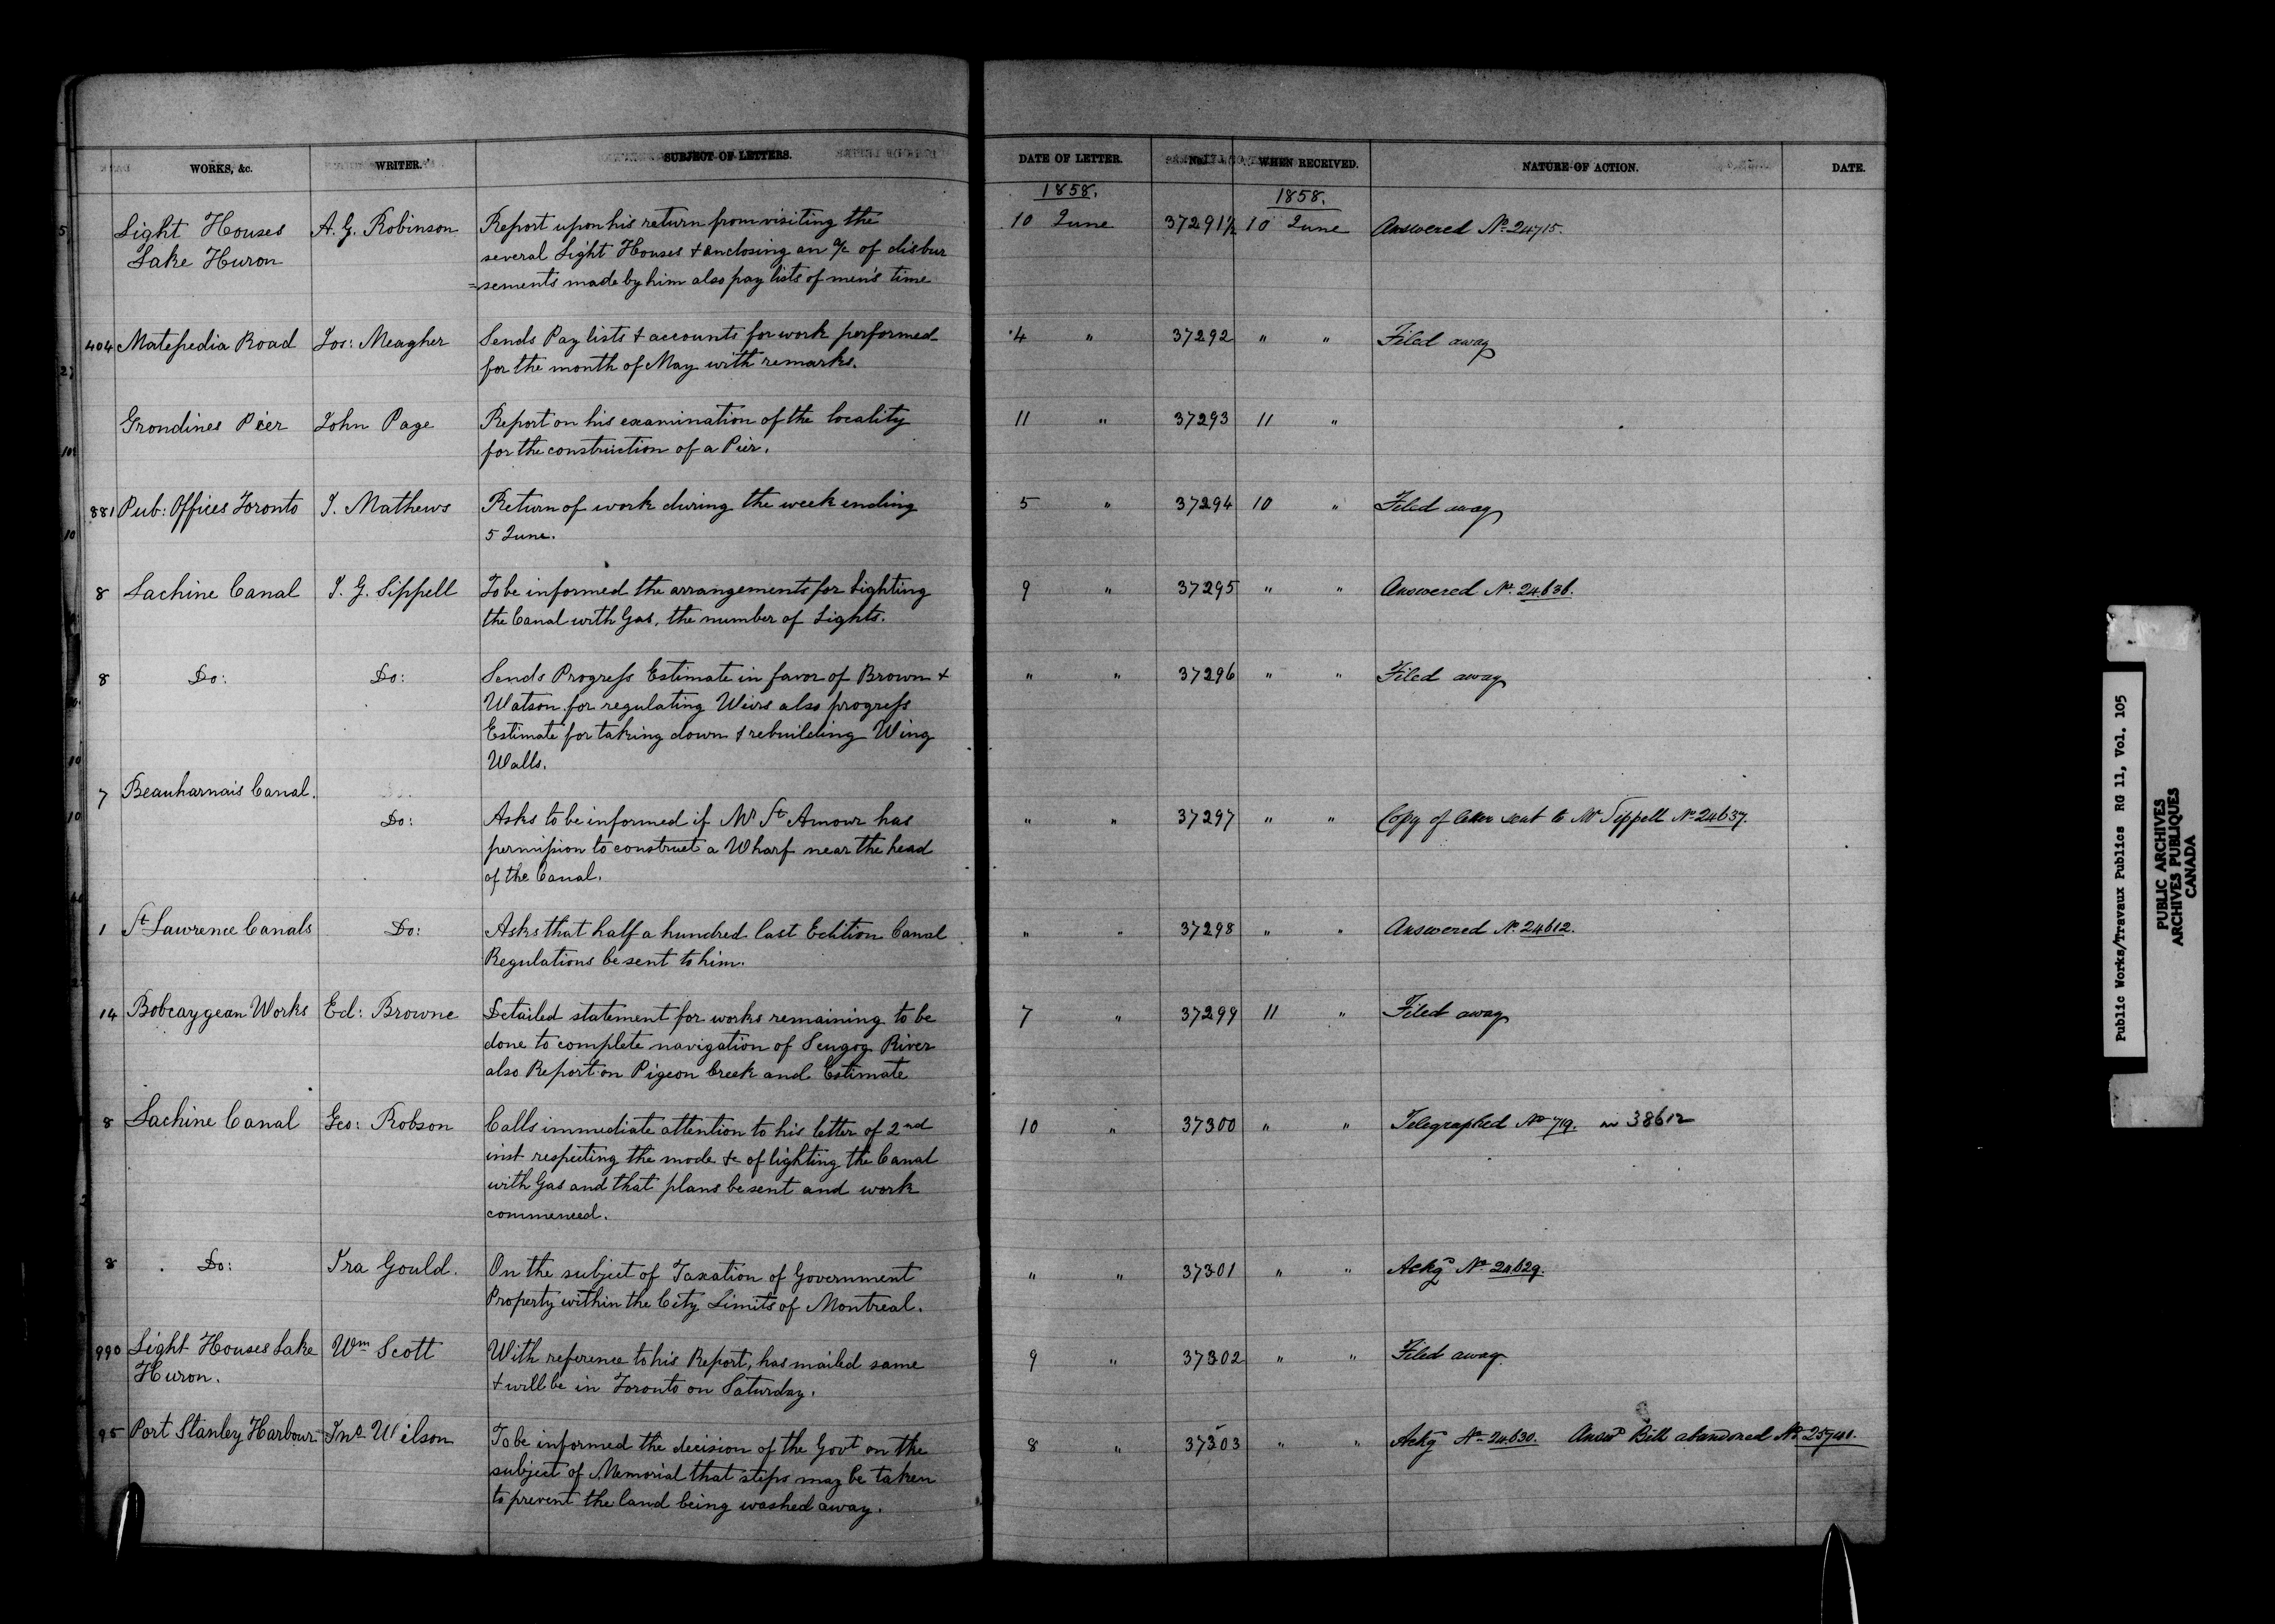 WORKS, &c. WRITER. SUBJECT OF LETTERS. DATE OF LETTER. No. WHEN RECEIVED. NATURE OF ACTION. DATE.
1858. 1858.
Light Houses A. G. Robinson Report upon his return from visiting the 10 June 37291½ 10 June Answered No. 24715.
Lake Huron several Light Houses & enclosing an a/c of disbur
=sements made by him also pay lists of men's time
404 Matepedia Road Jos: Meagher Sends Pay lists & accounts for work performed 4 " 37292 " " Filed away
for the month of May with remarks.
Grondines Pier John Page Report on his examination of the locality 11 " 37293 11 "
for the construction of a Pier.
881 Pub: Offices Toronto J. Mathews Return of work during the week ending 5 " 37294 10 " Filed away
5 June.
8 Lachine Canal J. G. Sippell To be informed the arrangements for Lighting 9 " 37295 " " Answered No. 24636.
the Canal with Gas, the number of Lights.
8 Do: Do: Sends Progress Estimate in favor of Brown & " " 37296 " " Filed away
Watson for regulating Weirs also progress
Estimate for taking down & rebuilding Wing
Walls.
7 Beauharnais Canal.
Do: Asks to be informed if Mr St Amour has " " 37297 " " Copy of letter sent to Mr Sippell No 24637.
permission to construct a Wharf near the head
of the Canal.
1 St Lawrence Canals Do: Asks that half a hundred last Edition Canal " " 37298 " " Answered No. 24612.
Regulations be sent to him.
14 Bobcaygean Works Ed: Browne Detailed statement for works remaining to be 7 " 37299 11 " Filed away
done to complete navigation of Scugog River
also Report on Pigeon Creek and Estimate
8 Lachine Canal Geo: Robson Calls immediate attention to his letter of 2nd 10 " 37300 " " Telegraphed No 719. in 38612
inst respecting the mode &c of lighting the Canal
with Gas and that plans be sent and work
commenced.
8 Do: Ira Gould. On the subject of Taxation of Government " " 37301 " " Ackgd No 24629.
Property within the City Limits of Montreal.
990 Light Houses Lake Wm Scott With reference to his Report, has mailed same 9 " 37302 " " Filed away.
Huron. & will be in Toronto on Saturday.
95 Port Stanley Harbour Jno Wilson To be informed the decision of the Govt on the 8 " 37303 " " Ackgd No 24630. Answd Bill abandoned No
subject of Memorial that steps may be taken
to prevent the land being washed away.
Public Works/Travaux Publics RG 11, Vol. 105
PUBLIC ARCHIVES
ARCHIVES PUBLIQUES
CANADA